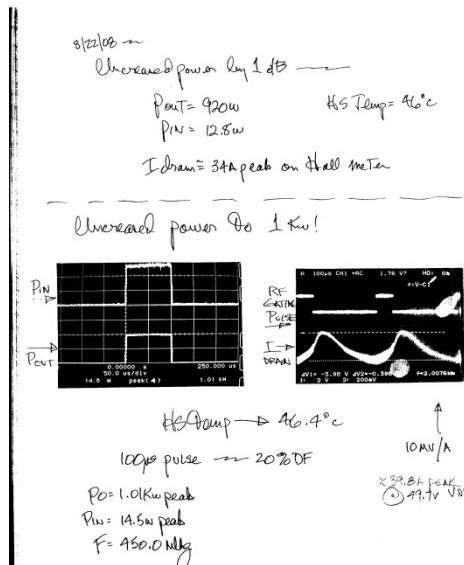 8/22/08
Increased power by 1 dB
Pout = 920w
H/S Temp = 46°c
PIN = 12.8w
I drain ≈ 34A peak on Hall meter
Increased power to 1 Kw!
PIN
POUT
0.00000 s
50.0 us/div
250.000 us
14.5 W peak(4) 1.01 kW
RF
GATING
PULSE
I
DRAIN
A 100µs CH1 +AC 1.78 V? HD: 0%
f:V-C1
ΔV1= -3.98 V ΔV2=-0.398 f=2.0076kHz
1: 2 V 2: 200mV
H/S Temp → 46.4°c
100µs pulse 20% DF
10MV/A
PO = 1.01Kw peak
PIN = 14.5w peak
F = 450.0 MHz
≈ 39.8A PEAK